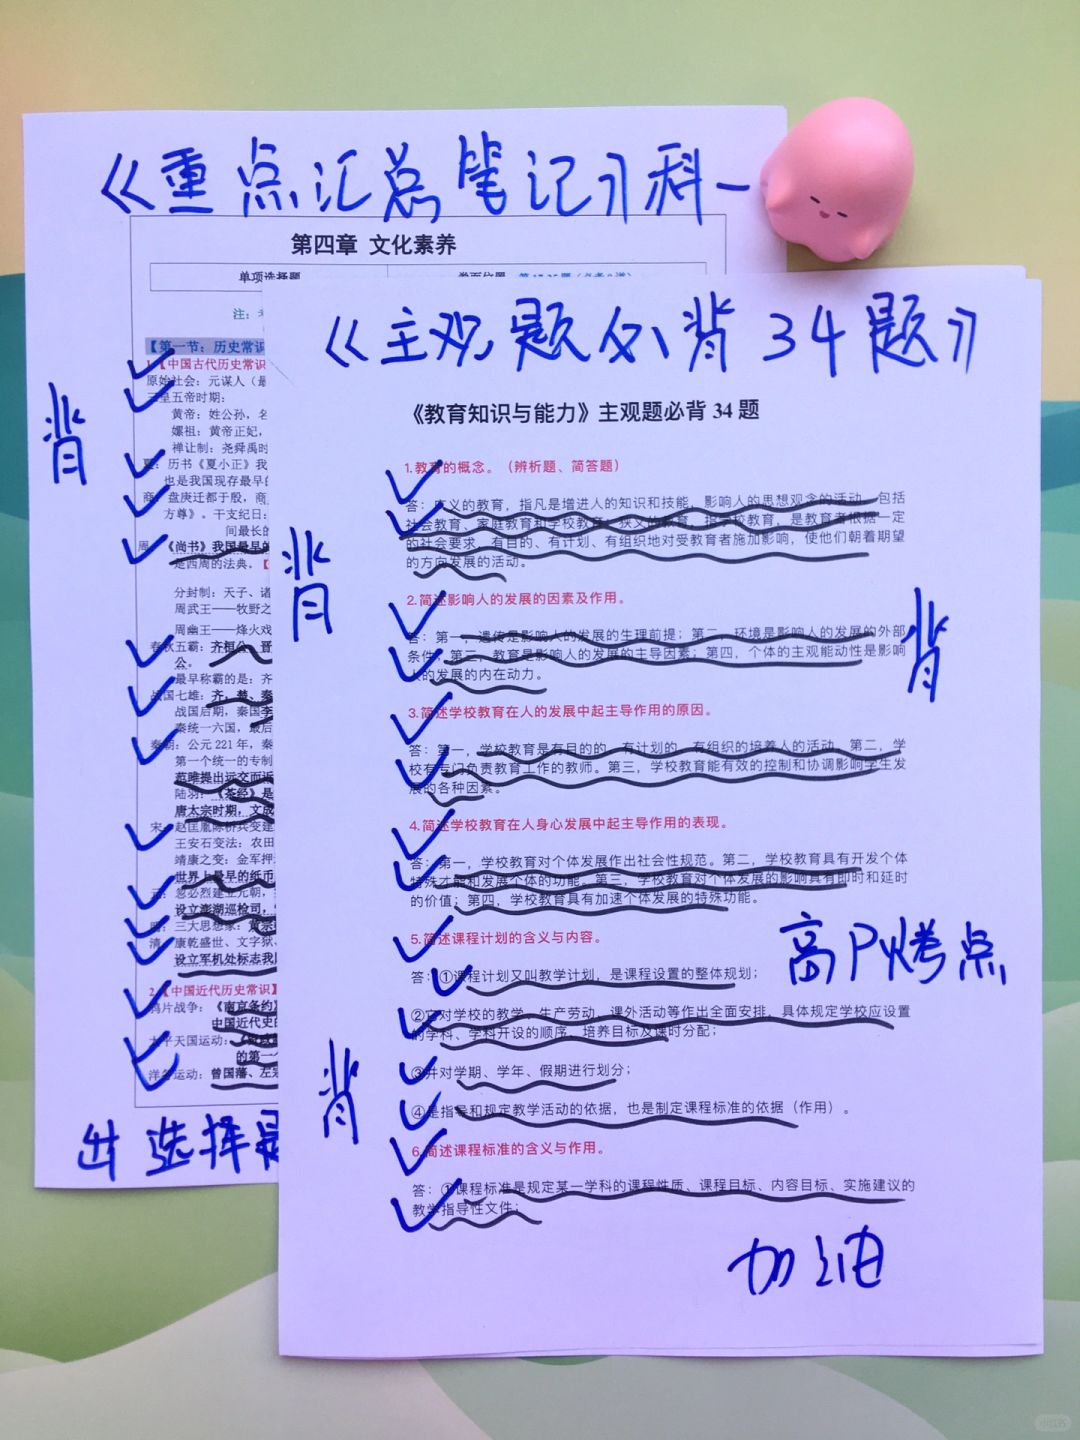 《重点汇总笔记》科一
第四章 文化素养
单项选择题
注：
【第一节：历史常识
1.【中国古代历史常识
原始社会：元谋人（最
三皇五帝时期：
黄帝：姓公孙，名
嫘祖：黄帝正妃，
禅让制：尧舜禹时
夏：历书《夏小正》我
也是我国现存最早的
商：盘庚迁都于殷，商
方尊》。干支纪日：
间最长的
周：《尚书》我国最早的
是西周的法典。【
分封制：天子、诸
周武王——牧野之
周幽王——烽火戏
春秋五霸：齐桓公、晋
公。
最早称霸的是：齐
战国七雄：齐、楚、秦
战国后期，秦国李
秦统一六国，最后
秦朝：公元 221 年，秦
第一个统一的专制
范雎提出远交而近
陆羽：《茶经》是
唐太宗时期，文成
宋：赵匡胤陈桥兵变建
王安石变法：农田
靖康之变：金军押
世界上最早的纸币
元：忽必烈建立元朝，
设立澎湖巡检司，
明：三大思想家：黄宗
清：康乾盛世、文字狱、
设立军机处标志我
2.【中国近代历史常识】
鸦片战争：《南京条约》
中国近代史的
太平天国运动：
的第一个
洋务运动：曾国藩、左宗
背
出选择题
《主观题必背34题》
《教育知识与能力》主观题必背 34 题
1.教育的概念。（辨析题、简答题）
答：广义的教育，指凡是增进人的知识和技能，影响人的思想观念的活动，包括
社会教育、家庭教育和学校教育；狭义的教育，指学校教育，是教育者根据一定
的社会要求，有目的、有计划、有组织地对受教育者施加影响，使他们朝着期望
的方向发展的活动。
2.简述影响人的发展的因素及作用。
答：第一，遗传是影响人的发展的生理前提；第二，环境是影响人的发展的外部
条件；第三，教育是影响人的发展的主导因素；第四，个体的主观能动性是影响
人的发展的内在动力。
3.简述学校教育在人的发展中起主导作用的原因。
答：第一，学校教育是有目的的、有计划的、有组织的培养人的活动。第二，学
校有专门负责教育工作的教师。第三，学校教育能有效的控制和协调影响学生发
展的各种因素。
4.简述学校教育在人身心发展中起主导作用的表现。
答：第一，学校教育对个体发展作出社会性规范。第二，学校教育具有开发个体
特殊才能和发展个体的功能。第三，学校教育对个体发展的影响具有即时和延时
的价值；第四，学校教育具有加速个体发展的特殊功能。
5.简述课程计划的含义与内容。
答：①课程计划又叫教学计划，是课程设置的整体规划；
②它对学校的教学、生产劳动、课外活动等作出全面安排，具体规定学校应设置
的学科、学科开设的顺序、培养目标及课时分配；
③并对学期、学年、假期进行划分；
④是指导和规定教学活动的依据，也是制定课程标准的依据（作用）。
6.简述课程标准的含义与作用。
答：①课程标准是规定某一学科的课程性质、课程目标、内容目标、实施建议的
教学指导性文件；
背
背
高P烤点
背
加油